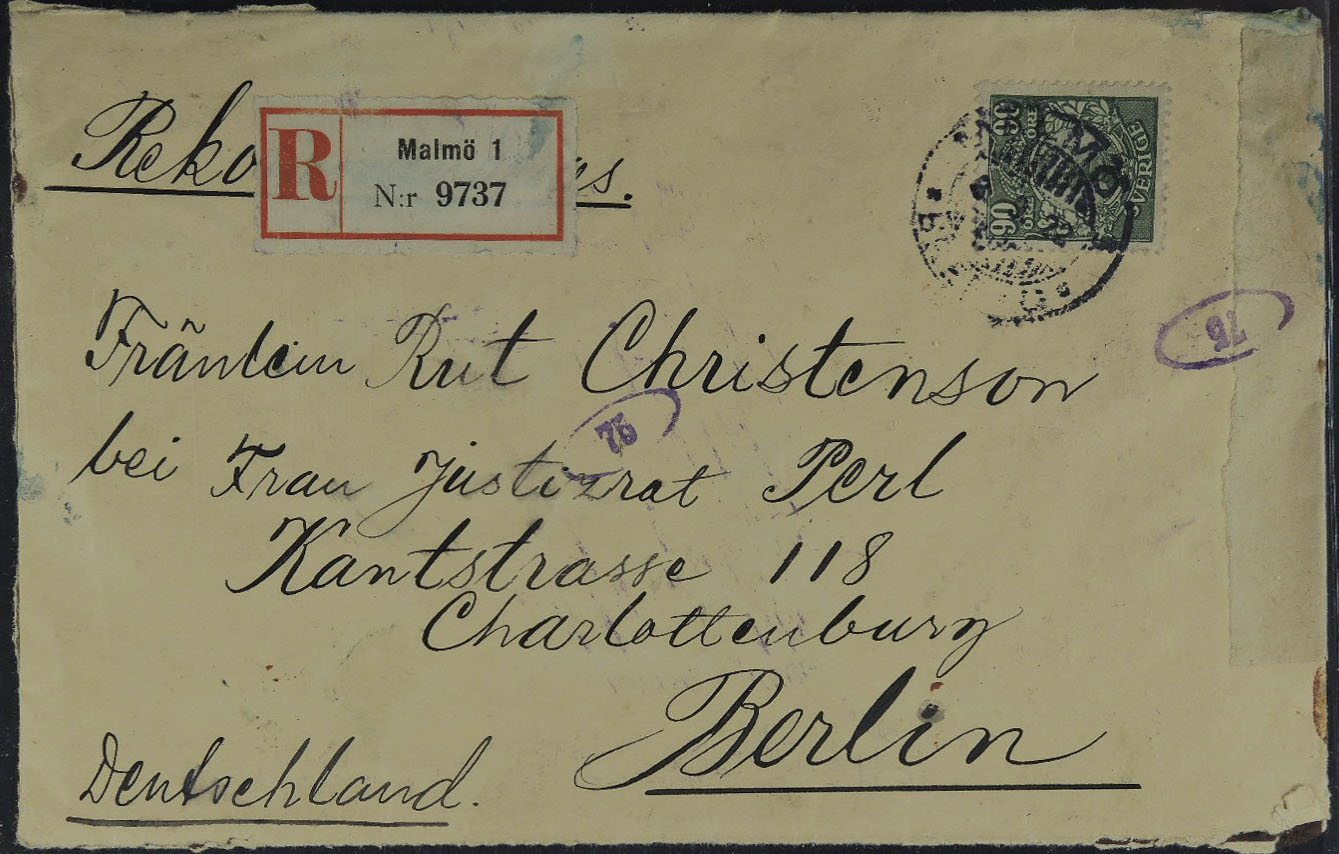 R
Malmö 1
N:r 9737
90
SVERIGE
90
75
Fräulein Rut Christenson
75
bei Frau Justizrat Perl
Kantstrasse 118
Charlottenburg
Berlin
Deutschland.